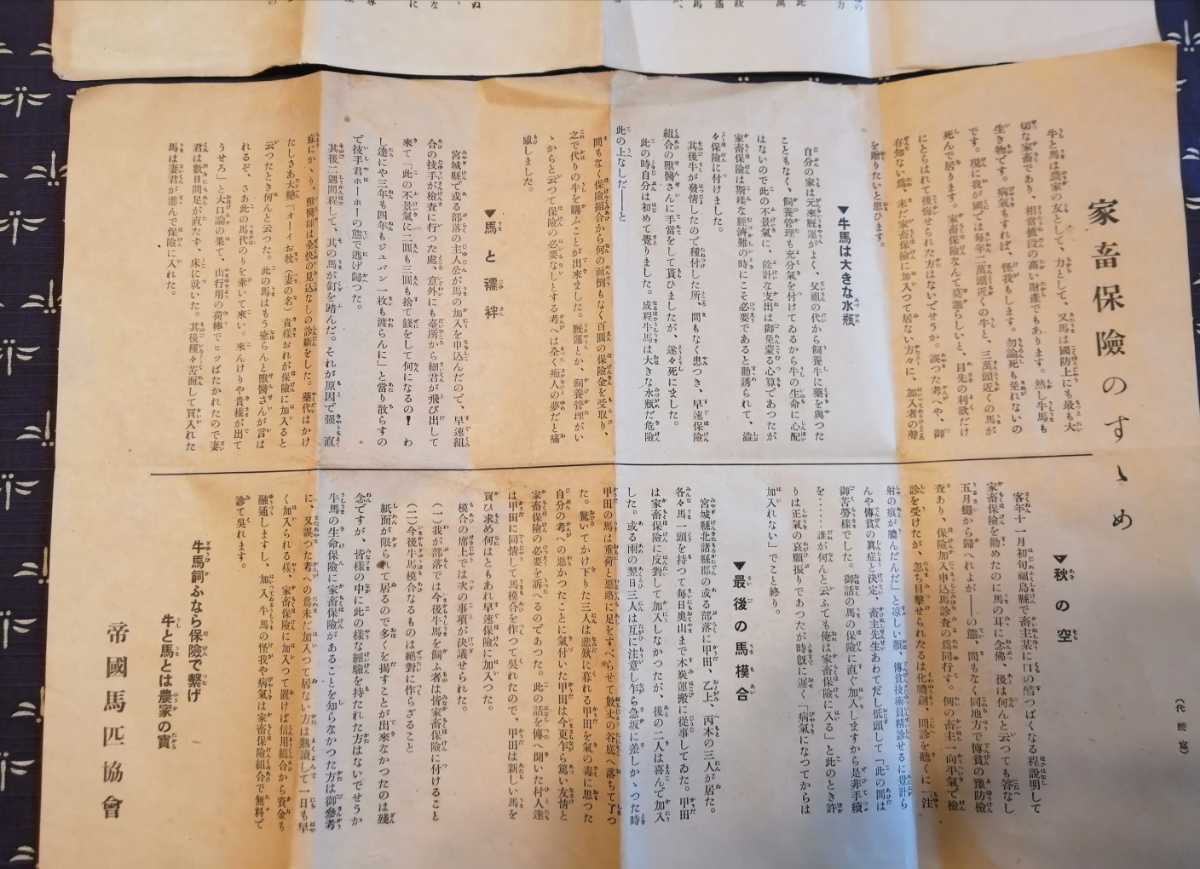 家畜保險のすゝめ
(代謄寫)
牛と馬は農家の友として、力として、又馬は國防上にも最も大
切な家畜であり、相當値段の高い財產でもあります。然し牛馬も
生き物です。病氣もすれば、怪我もします。勿論死も免れないの
です。現に我が國では每年二萬頭近くの牛と、三萬頭近くの馬が
死んで居ります。家畜保險なんて莫迦らしいと、目先の利欲だけ
にとらはれて後悔せられた方はないでせうか。誤つた考へや、御
存知ない爲、未だ家畜保險に加入つて居ない方々に、加入者の聲
を贈りたいと思ひます。
▼牛馬は大きな水瓶
自分の家は元來厩運がよく、父祖の代から飼養牛に藥を與つた
こともなく、飼養管理も充分氣を付けてゐるから牛の生命に心配
はないので此の不景氣に、餘計な支出は御免蒙る心算であつたが
家畜保險は斯樣な經濟難の時にこそ必要であると勸誘られて、澁
々保險に付けました。
其後牛が發情したので種付した所、間もなく患つき、早速保險
組合の獸醫さんに手當をして貰ひましたが、遂々死にました。
此の時自分は初めて覺りました。成程牛馬は大きな水瓶だ危險
此の上なしだ――と
間もなく保險組合から何の面倒もなく百圓の保險金を受取り、
之で代りの牛を購ふことが出來ました。厩運とか、飼養管理がい
ゝからと云つて保險の必要なしとする考へは全く痴人の夢だと痛
感しました。
▼馬と襦袢
宮城縣で或る部落の主人公が馬の加入を申込んだので、早速組
合の技手が檢査に行つた處、意外にも臺所から細君が飛び出して
來て「此の不景氣に二圓も三圓も捨て錢をして何になるの!わ
し達にや三年も四年もジュバン一枚も渡らんに」と當り散らすの
で技手君ホーホーの態で逃げ歸つた。
其後二週間程して、其の馬が釘を踏んだ。それが原因で强直
症にかゝり、獸醫師は全快の見込なしの診斷をした。藥代はかけ
たしさあ大變「オーイお牧(妻の名)貴樣おれが保險に加入ると
云つたとき何んと云つた。此の馬はもう癒らんと獸醫さんが言は
れるぞ、さあ此の馬代のりを稼いて來い。來んけりや貴樣が出て
うせろ」と大口論の果て、山行用の荷棒でヒッぱたかれたので妻
君は數日間足が直たず、床に就いた。其後種々苦面して買入れた
馬は妻君が進んで保險に入れた。
▼秋の空
客年十一月初旬福島縣で畜主某に口の酢つぱくなる程說明して
家畜保險を勸めたのに馬の耳に念佛、後は何んと云つても答なし
五月蠅から歸れがよが――の態、間もなく同地方で傳貧の豫防檢
查あり、保險加入申込馬診査の爲同行す。例の畜主一向平氣で檢
診を受けたが、忽ち目擊せられたるは化膿創、問診を聽くに「注
射の痕が膿んんだ」と凉しい顏、傳貧技術員精診せるに豈計ら
んや傳貧の眞症と決定、畜主先生あわてだし低頭して「此の間は
御苦勞樣でした。御話の馬の保險に直ぐ加入しますから是非手續
を‥‥‥誰が何んと云ふても俺は家畜保險に入る」と此のとき許
りは正氣の哀願振りであつたが時既に遲く「病氣になつてからは
加入れない」でこと終り。
▼最後の馬模合
宮城縣北諸縣郡の或る部落に甲田、乙上、丙木の三人が居た。
各々馬一頭を持つて每日奧山まで木炭運搬に從事してゐた。甲田
は家畜保險に反對して加入しなかつたが、後の二人は喜んで加入
した。或る雨の翌日三人は互に注意し乍ら急坂に差しかゝつた時
甲田の馬は重荷と惡路に足をすべらせて數丈の谷底へ落ちて了つ
た。驚いてかけ下りた三人は悲歎に暮れる甲田を氣の毒に思つた
自分の考への愚かつたことに氣付いた甲田は今更乍ら篤い友情と
家畜保險の必要を訴へるのであつた。此の話を傳へ聞いた村人達
は甲田に同情して馬模合を作つて吳れたので、甲田は新しい馬を
買ひ求め何はともあれ早速保險に加入つた。
模合の席上では次の事項が決議せられた。
(一)我が部落では今後牛馬を飼ふ者は皆家畜保險に付けること
(二)今後牛馬模合なるものは絕對に作らざること
紙面が限られて居るので多くを揭すことが出來なかつたのは殘
念ですが、皆樣の中に此の樣な經驗を持たれた方はないでせうか
牛馬の生命保險に家畜保險があることを知らなかつた方は御參考
に、又誤つた考への爲未だ加入つて居ない方は熟讀して一日も早
く加入られる樣、家畜保險に加入つて置けば信用組合から資金も
融通しますし、加入、牛馬の怪我や病氣は家畜保險組合で無料で
診て吳れます。
牛馬飼ふなら保險で繫げ
牛と馬とは農家の寶
帝國馬匹協會